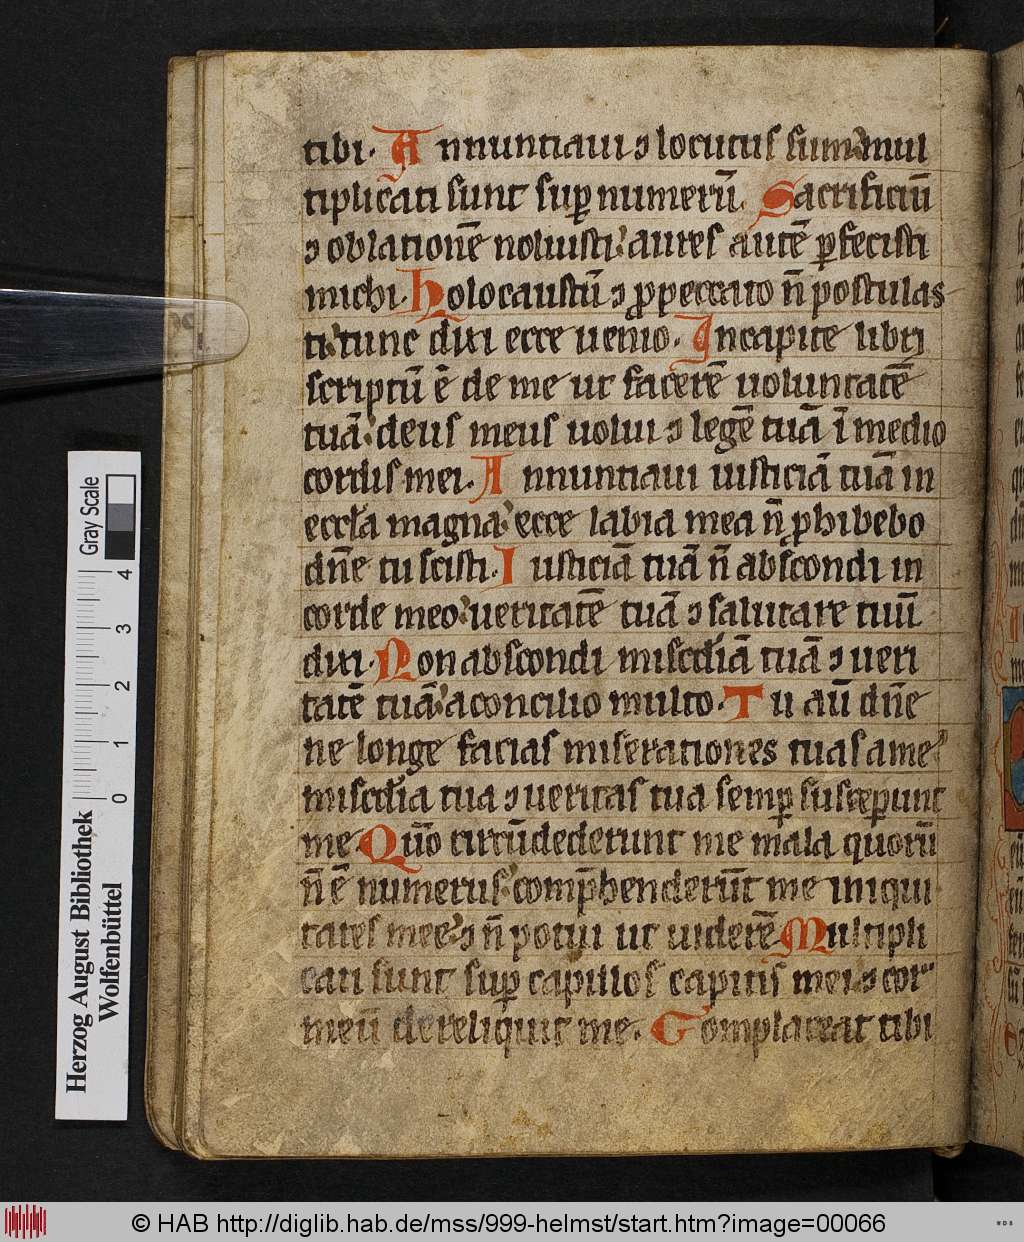 tibi. Annuntiaui ⁊ locutus sum: mul
tiplicati sunt sup̲ numerū. Sacrificiū
⁊ oblationē noluisti: aures autē ꝑfecisti
michi. Holocaustū ⁊ ꝓ peccato n̄ postulas
ti: tunc dixi ecce uenio. In capite libri
scriptū ē de me ut facerē uoluntatē
tuā: deus meus uolui ⁊ legē tuā ī medio
cordis mei. Annuntiaui iusticiā tuā in
eccl̄a magna: ecce labia mea n̄ ꝓhibebo
dn̄e tu scisti. Iusticiā tuā n̄ abscondi in
corde meo: ueritatē tuā ⁊ salutare tuū
dixi. Non abscondi misc̄diā tuā ⁊ ueri
tatē tuā: a concilio multo. Tu aū dn̄e
ne longe facias miserationes tuas a me:
misc̄dia tua ⁊ ueritas tua semꝑ susceperunt
me. Qm̄ circūdederunt me mala quorū
n̄ ē numerus: comp̄henderūt me iniqui
tates mee: ⁊ n̄ potui ut uiderē. Multipli
cati sunt suꝑ capillos capitis mei: ⁊ cor
meū dereliquit me. Complaceat tibi
Gray Scale
4
3
2
1
0
Herzog August Bibliothek
Wolfenbüttel
© HAB http://diglib.hab.de/mss/999-helmst/start.htm?image=00066